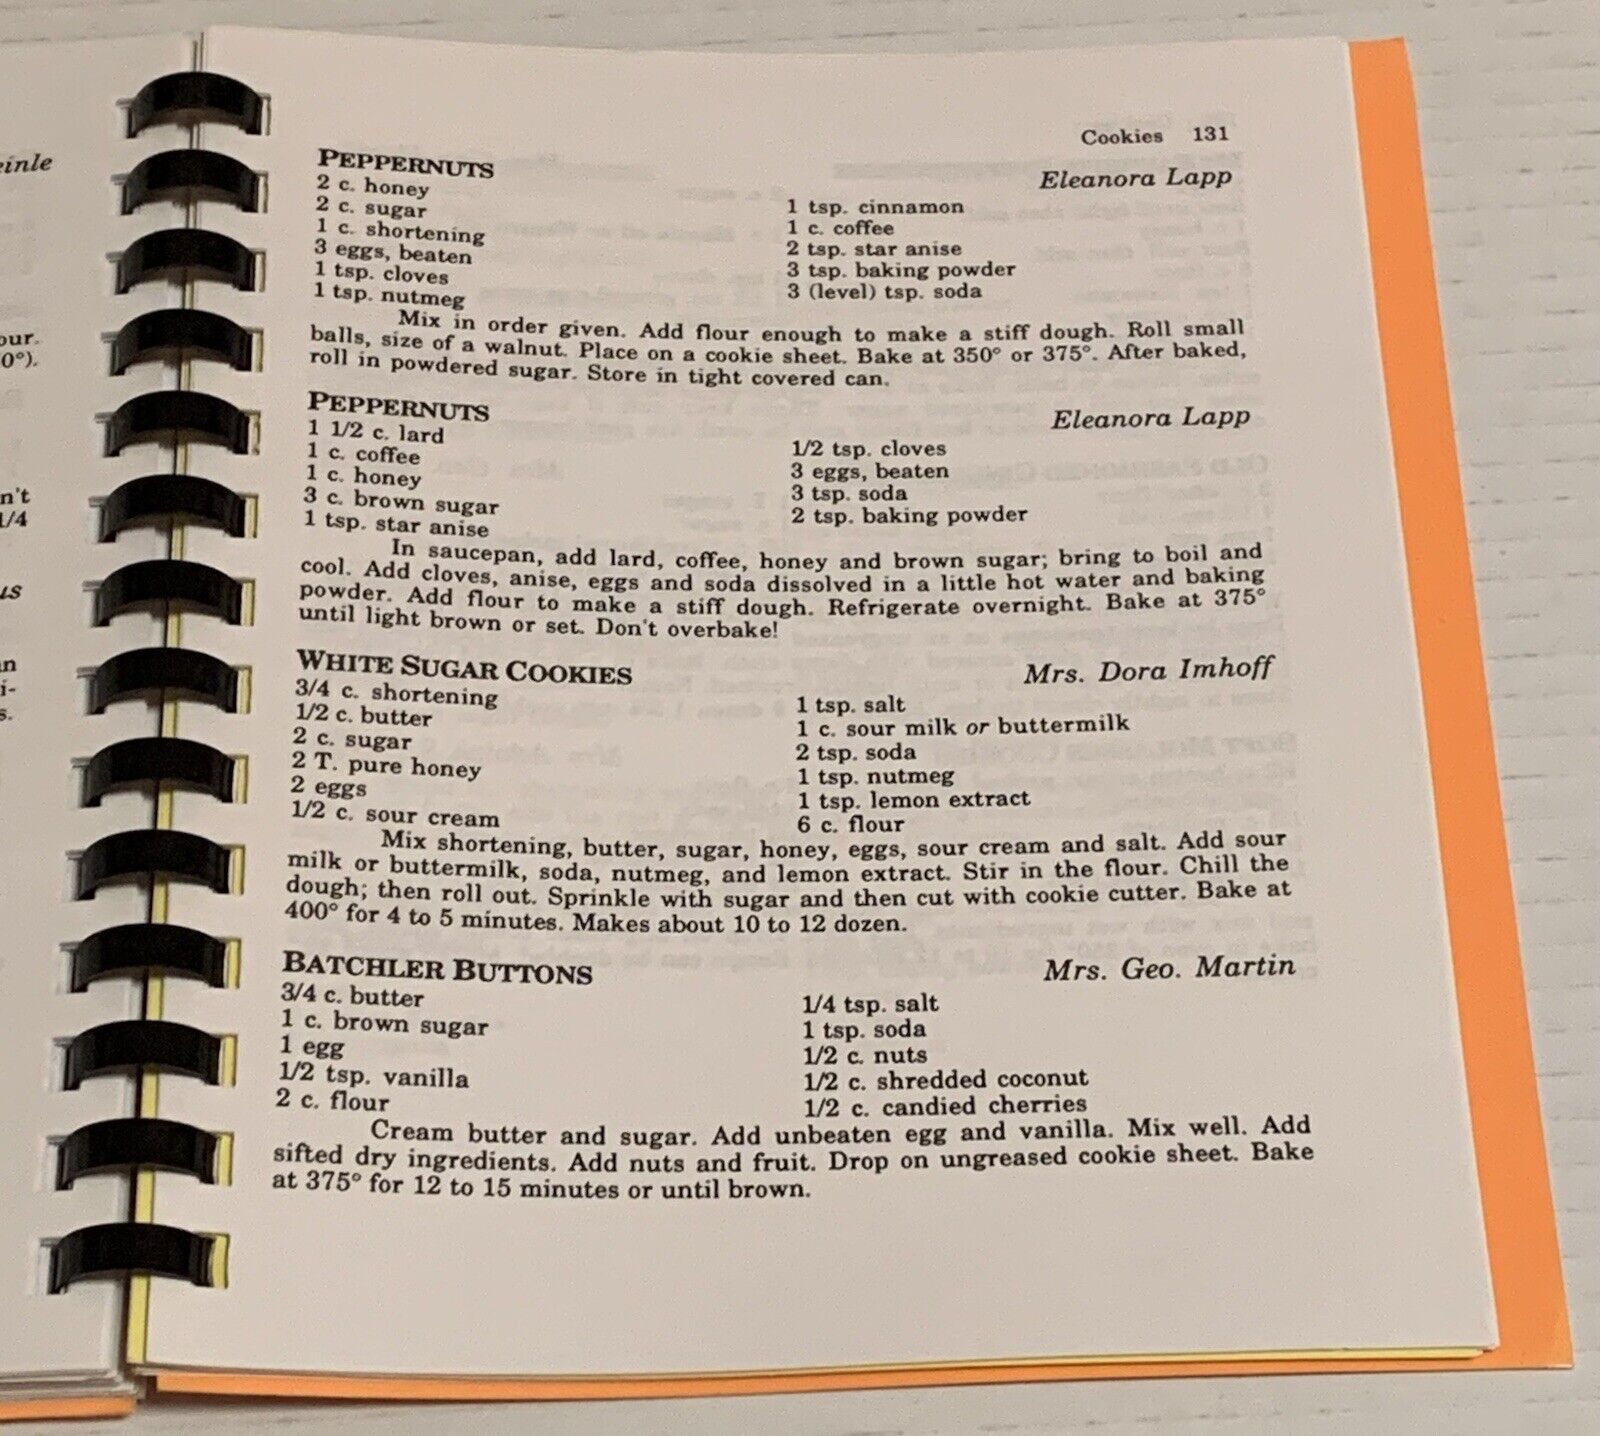 einle
our.
0°).
n't
1/4
us
n
i-
s.
Cookies 131
PEPPERNUTS
Eleanora Lapp
2 c. honey
2 c. sugar
1 c. shortening
3 eggs, beaten
1 tsp. cloves
1 tsp. nutmeg
1 tsp. cinnamon
1 c. coffee
2 tsp. star anise
3 tsp. baking powder
3 (level) tsp. soda
Mix in order given. Add flour enough to make a stiff dough. Roll small
balls, size of a walnut. Place on a cookie sheet. Bake at 350° or 375°. After baked,
roll in powdered sugar. Store in tight covered can.
PEPPERNUTS
Eleanora Lapp
1 1/2 c. lard
1 c. coffee
1 c. honey
3 c. brown sugar
1 tsp. star anise
1/2 tsp. cloves
3 eggs, beaten
3 tsp. soda
2 tsp. baking powder
In saucepan, add lard, coffee, honey and brown sugar; bring to boil and
cool. Add cloves, anise, eggs and soda dissolved in a little hot water and baking
powder. Add flour to make a stiff dough. Refrigerate overnight. Bake at 375°
until light brown or set. Don't overbake!
WHITE SUGAR COOKIES
Mrs. Dora Imhoff
3/4 c. shortening
1/2 c. butter
2 c. sugar
2 T. pure honey
2 eggs
1/2 c. sour cream
1 tsp. salt
1 c. sour milk or buttermilk
2 tsp. soda
1 tsp. nutmeg
1 tsp. lemon extract
6 c. flour
Mix shortening, butter, sugar, honey, eggs, sour cream and salt. Add sour
milk or buttermilk, soda, nutmeg, and lemon extract. Stir in the flour. Chill the
dough; then roll out. Sprinkle with sugar and then cut with cookie cutter. Bake at
400° for 4 to 5 minutes. Makes about 10 to 12 dozen.
BATCHLER BUTTONS
Mrs. Geo. Martin
3/4 c. butter
1 c. brown sugar
1 egg
1/2 tsp. vanilla
2 c. flour
1/4 tsp. salt
1 tsp. soda
1/2 c. nuts
1/2 c. shredded coconut
1/2 c. candied cherries
Cream butter and sugar. Add unbeaten egg and vanilla. Mix well. Add
sifted dry ingredients. Add nuts and fruit. Drop on ungreased cookie sheet. Bake
at 375° for 12 to 15 minutes or until brown.